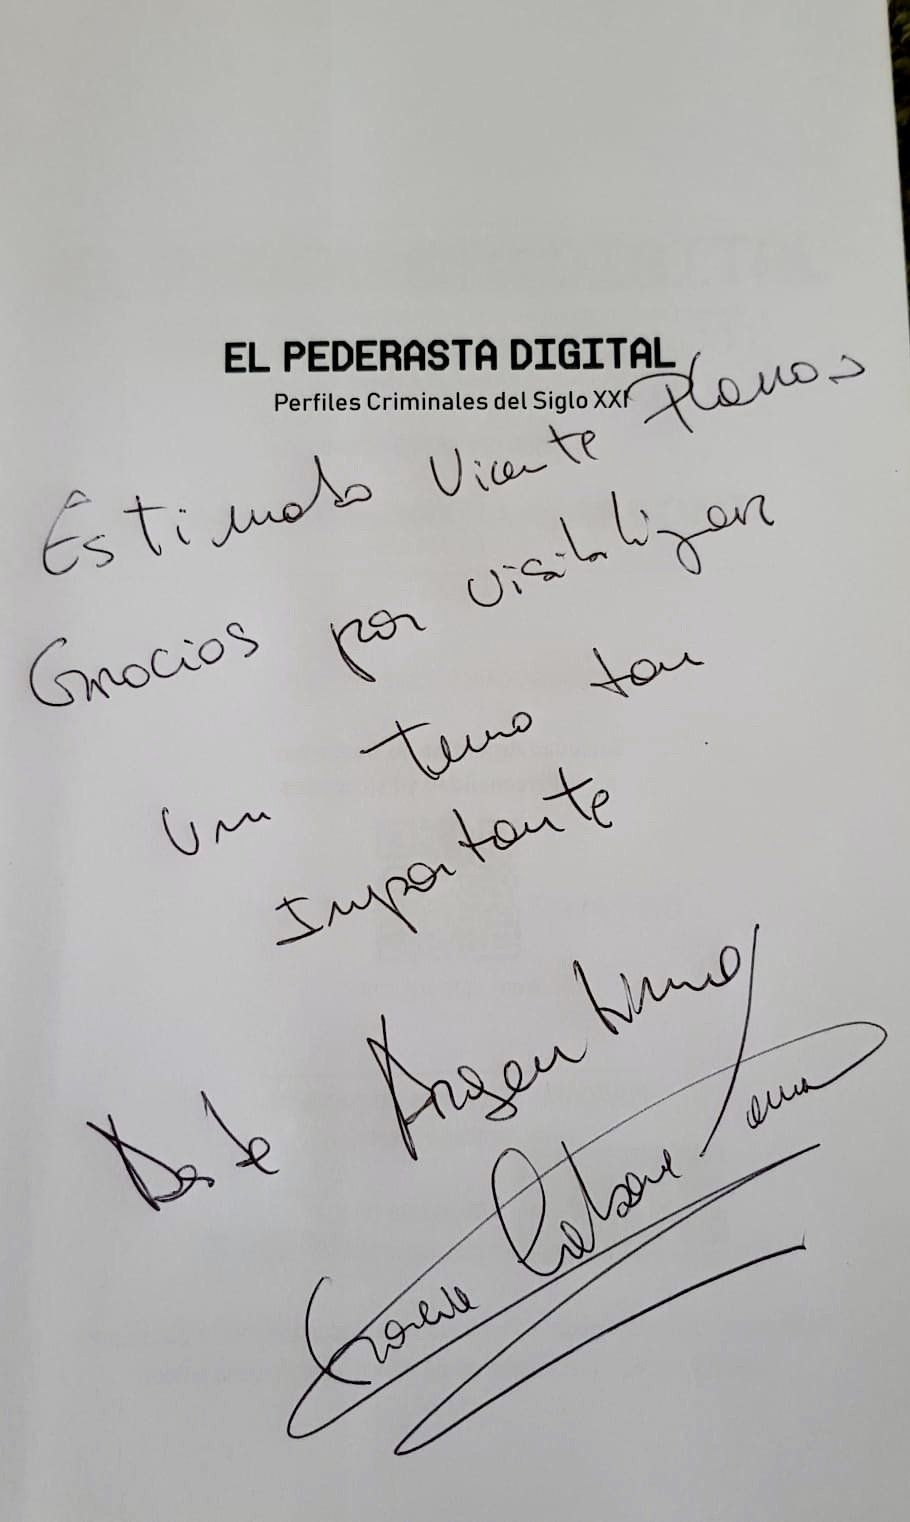 EL PEDERASTA DIGITAL
Perfiles Criminales del Siglo XXI
Estimado Vicente Planas
Gracias por visibilizar
un tema tan
Importante
Desde Argentina